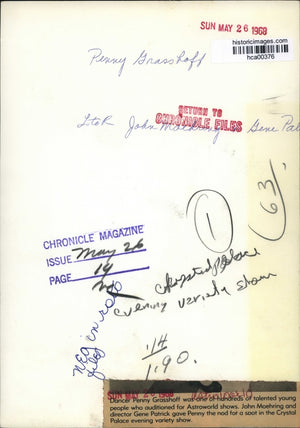 SUN MAY 26 1968
historicimages.com
hca00376
Penny Grasshoff
RETURN TO
CHRONICLE FILES
LtoR John Moehring Gene Pat
63/
1
CHRONICLE MAGAZINE
ISSUE May 26
PAGE 14
Crystal Palace
evening variety show
NEG in color
files
1/4
1.90.
SUN MAY 26 1968
Dancer Penny Grasshoff was one of hundreds of talented young
people who auditioned for Astroworld shows. John Moehring and
director Gene Patrick gave Penny the nod for a spot in the Crystal
Palace evening variety show.